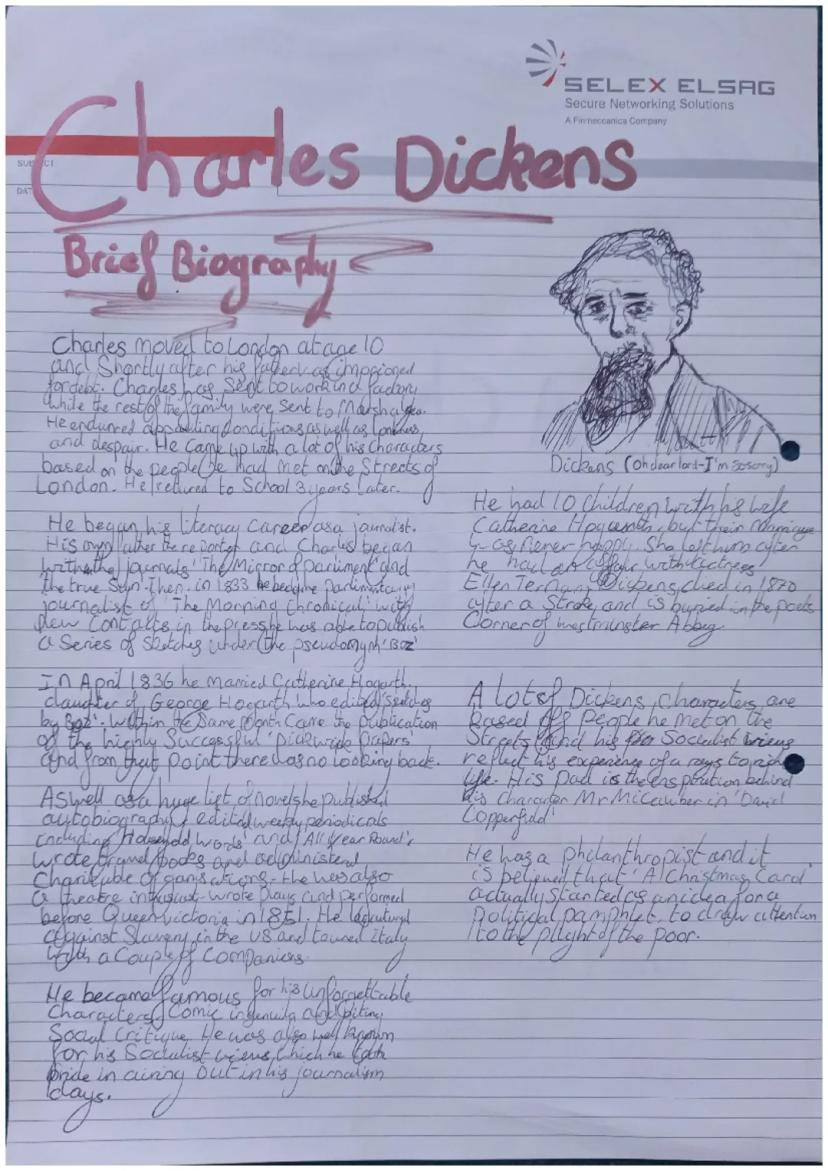 SELEX ELSAG
Secure Networking Solutions
A Finmeccanica Company
SUBJECT
DAT
Charles Dickens
Brief Biography
Charles moved to London at age 10
and Shortly after his father was imprisoned
for debt. Charles was Sent to work in a factory
while the rest of the family were sent to Marshalsea.
He endured appauling conditions as well as
and despair. He came up with a lot of his characters
based on the people he had met on the Streets of
London. He returned to School 3 years Later.
He began his literacy career as a journalist.
His own father the reporter and Charles began
with the journals 'The Mirror of parliment' and
the true Sun. Then, in 1833 he became parlimentary
journalist of 'The Morning Chronical' with
new contacts in the press he was able to publish
a Series of Sketches under the pseudomyn 'Boz'
In April 1836 he married Catherine Hogarth,
daughter of George Hogarth who edited 'sketches
by Boz'. Within the same Month Came the publication
of the highly Successful 'Pickwick Papers'
and from that point there was no looking back.
Aswell as a huge list of novels he published
autobiography, edited weekly periodicals
including 'Household Words' and 'All Year Round',
wrote travel books and administerd
Charitable organisations. He was also
a theatre , wrote plays and performed
before Queen Victoria in 1851. He
against Slavery in the US and toured Italy
with a couple of Companions.
He became famous for his unforgettable
Characters, Comic ingenuity and biting
Social Critique. He was also well known
for his Socialist views, which he took
pride in airing out in his journalism
days.
Dickens (oh dear lord - I'm so sorry)
He had 10 Children with his wife
Catherine , but their marriage
was never happy. She left him after
he had an affair with actress
Ellen Ternan. Dickens died in 1870
after a Stroke, and is buried in the poets
Corner of westminster Abbey.
A lot of Dickens, Characters are
Based off People he met on the
Streets and his Socialist views
reflect his experience of a rags to rich
life. His Dad is the insporation behind
his character Mr Micawber in 'David
Copperfield'
He was a philanthropist and it
is believed that 'A Christmas Carol'
actually started as an idea for a
Political pamphlet, to draw attention
to the plight of the poor.